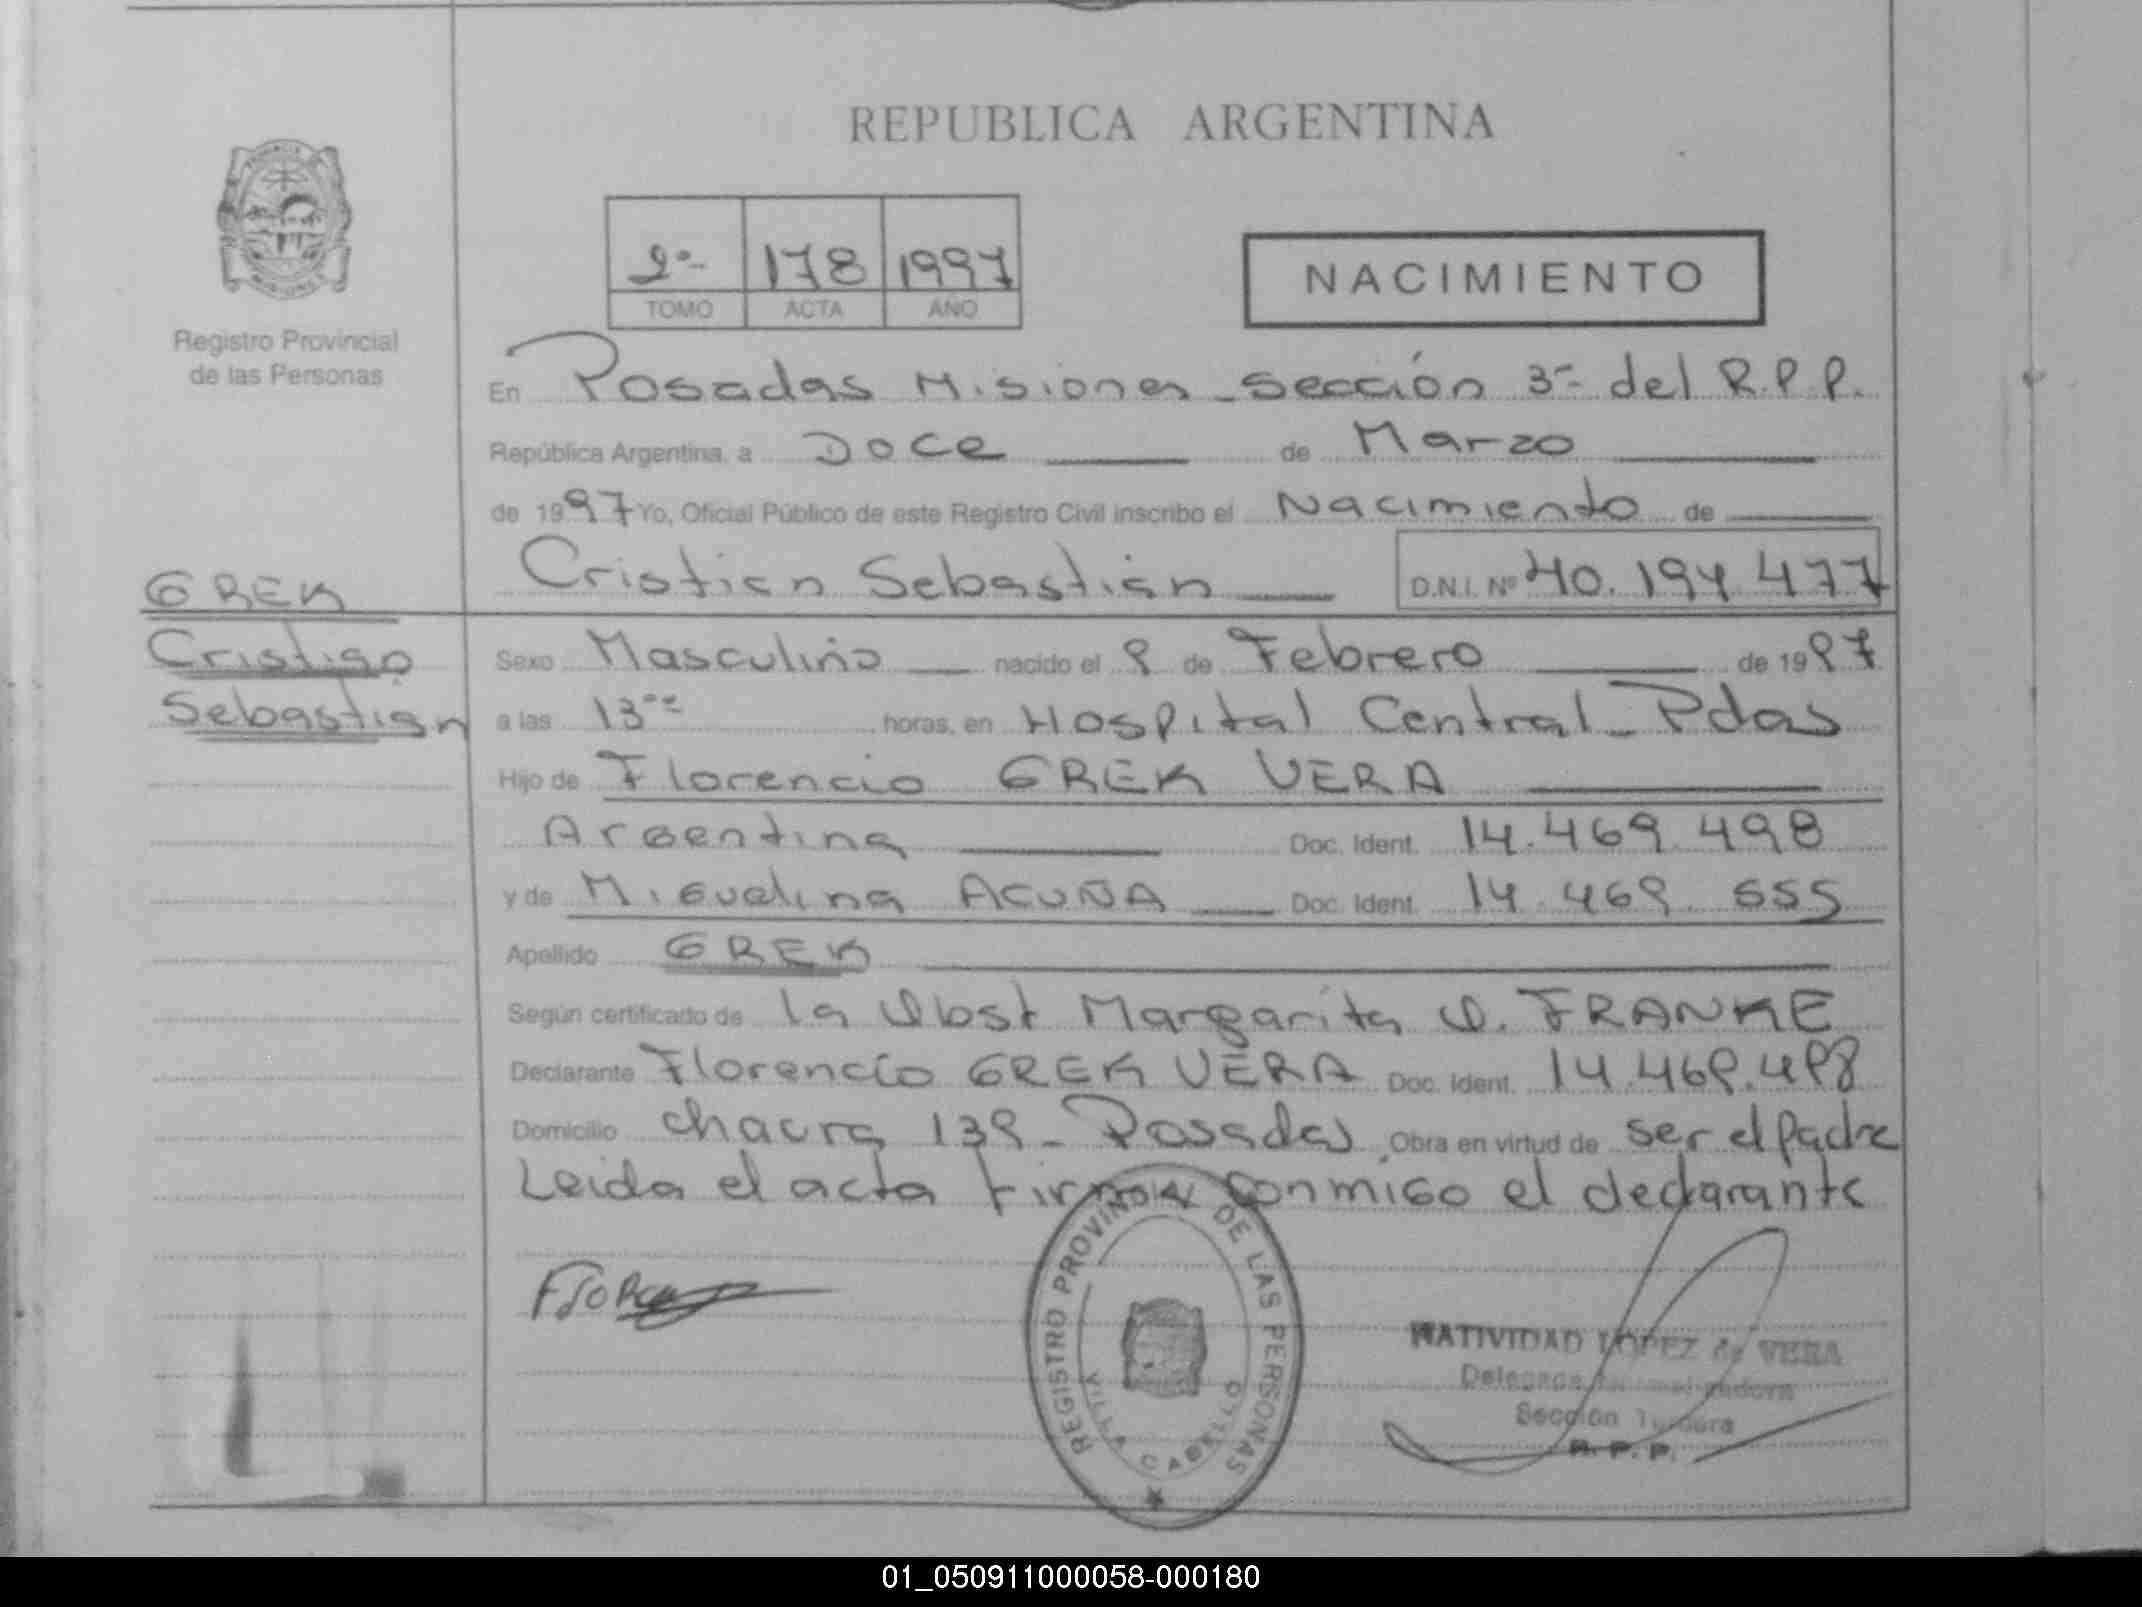 REPUBLICA ARGENTINA
2º- 178 1997
TOMO ACTA AÑO
NACIMIENTO
Registro Provincial
de las Personas
En Posadas Misiones - Sección 3ª del R.P.P.
República Argentina, a Doce de Marzo
de 1997 Yo, Oficial Público de este Registro Civil inscribo el Nacimiento de
Cristian Sebastián D.N.I. Nº 40.194.477
GREK
Cristian
Sebastián
Sexo Masculino nacido el 9 de Febrero de 1997
a las 13 horas, en Hospital Central - Pdas
Hijo de Florencio GREK VERA
Argentina Doc. Ident. 14.469.498
y de Miguelina ACUÑA Doc. Ident. 14.469.555
Apellido GREK
Según certificado de la Obst Margarita O. FRANKE
Declarante Florencio GREK VERA Doc. Ident. 14.469.498
Domicilio chacra 139 - Posadas Obra en virtud de ser el padre
Leida el acta firma conmigo el declarante
REGISTRO PROVINCIAL DE LAS PERSONAS
VILLA CABELLO
NATIVIDAD LOPEZ de VERA
Delegada
Sección
R.P.P.
01_050911000058-000180